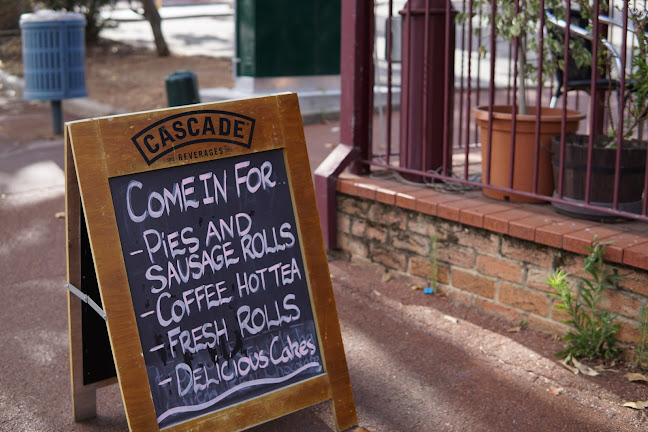 CASCADE
BEVERAGES
COME IN FOR...
- PIES AND
SAUSAGE ROLLS
- COFFEE HOT TEA
- FRESH ROLLS
- DELICIOUS CAKES